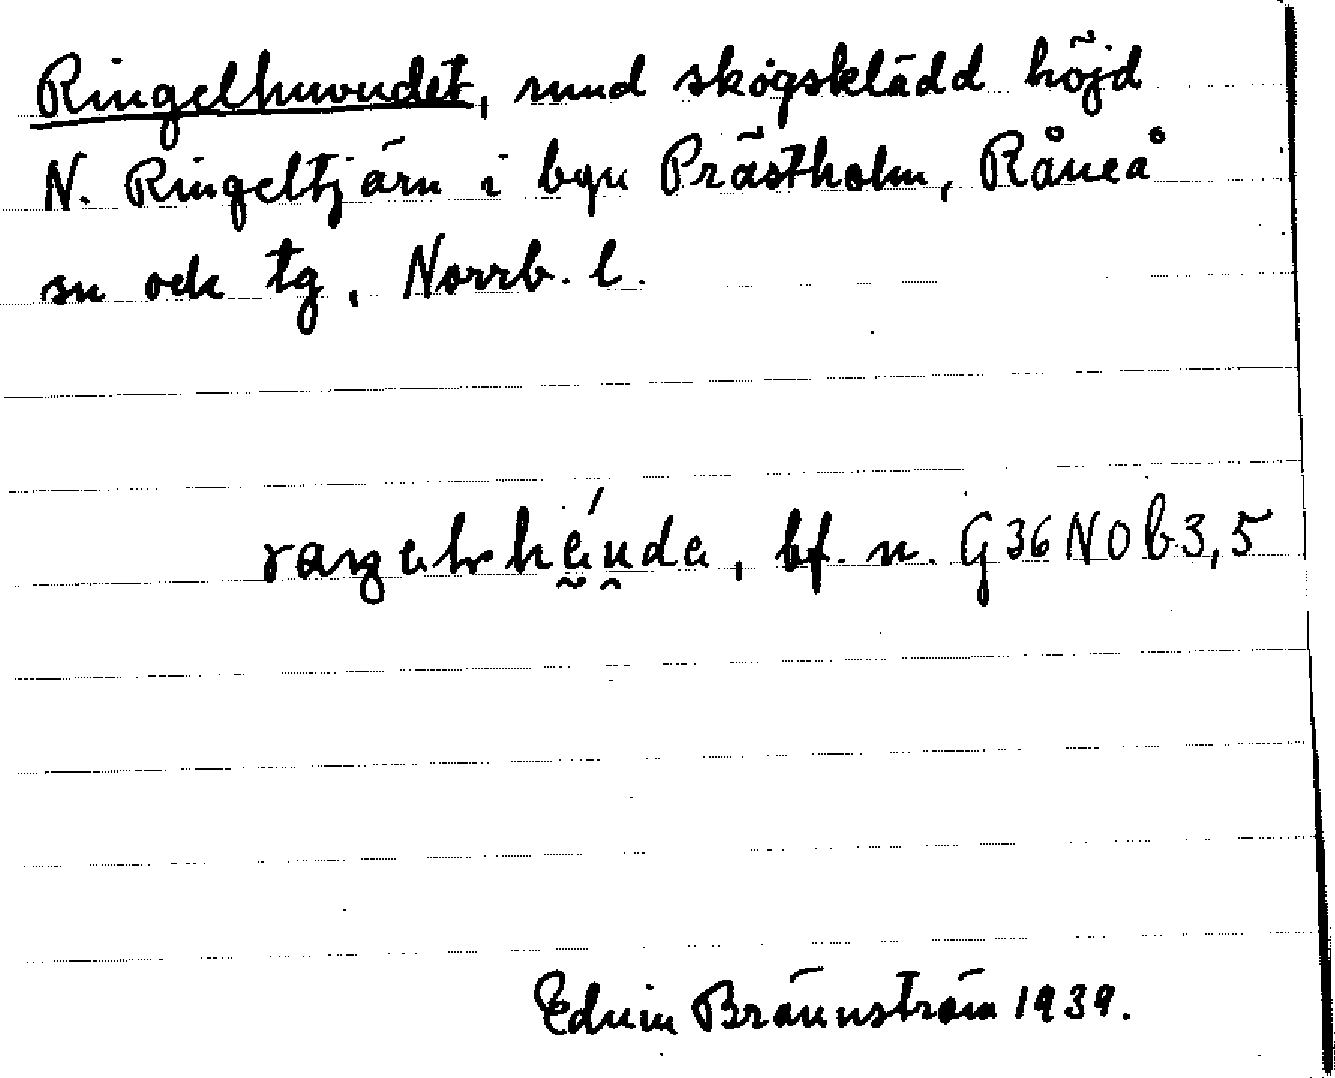 Ringelhuvudet, rund skogsklädd höjd
N. Ringeltjärn i byn Prästholm, Råneå
sn ock tg, Norrb. l.
bf. n. G36NOb3,5
Edvin Brännström 1939.